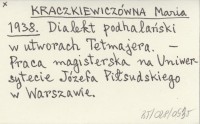 KRACZKIEWICZÓWNA Maria
1938. Dialekt podhalański
w utworach Tetmajera. –
Praca magisterska na Uniwer-
sytecie Józefa Piłsudskiego
w Warszawie.